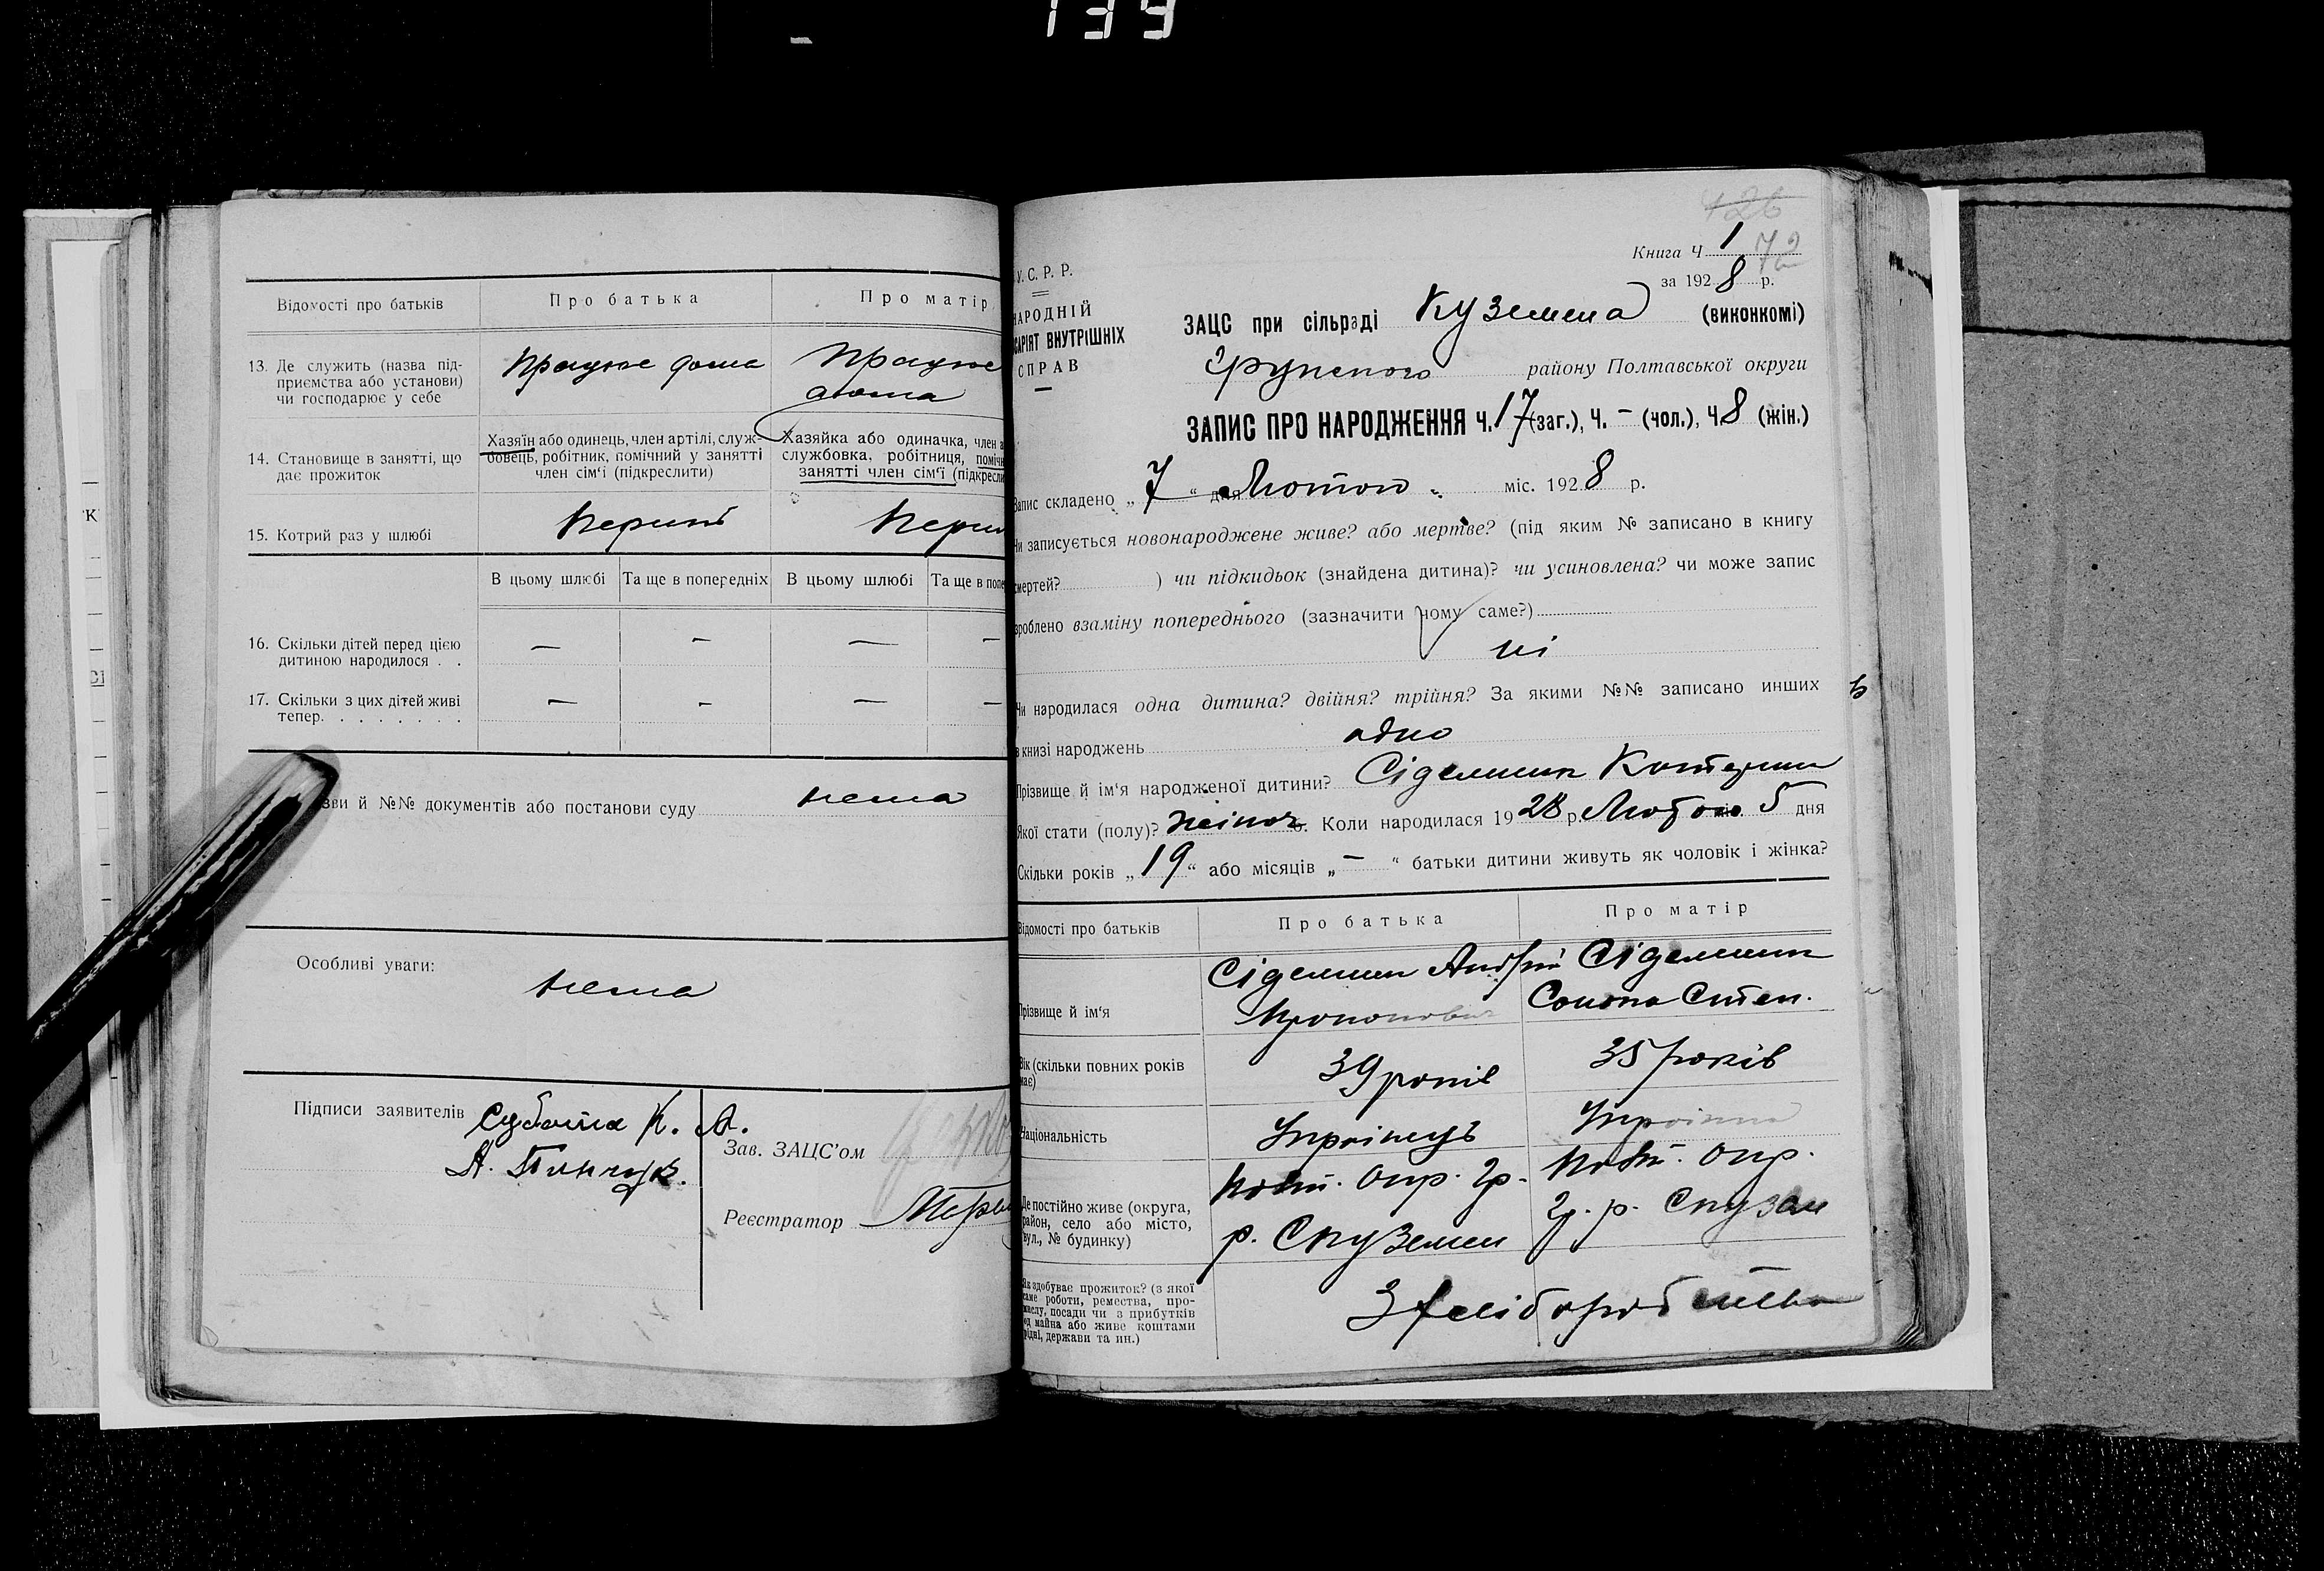 139
Відомості про батьків
Про батька
Про матір
13. Де служить (назва під-
приємства або установи)
чи господарює у себе
Працює дома
Працює
дома
14. Становище в занятті, що
дає прожиток
Хазяїн або одинець, член артілі, служ-
бовець, робітник, помічний у занятті
член сім'ї (підкреслити)
Хазяйка або одиначка, член а
службовка, робітниця, поміч
занятті член сім'ї (підкресли
15. Котрий раз у шлюбі
Перший
Перш
В цьому шлюбі
Та ще в попередніх
В цьому шлюбі
Та ще в попе
16. Скільки дітей перед цією
дитиною народилося . .
— — — —
17. Скільки з цих дітей живі
тепер. . . . . . . .
— — — —
зви й №№ документів або постанови суду нема
Особливі уваги:
нема
Підписи заявителів
Субота К. А.
А.
Зав. ЗАЦС'ом
Реєстратор
426
Книга Ч 1 72
за 1928 р.
У.С.Р.Р.
НАРОДНІЙ
САРІЯТ ВНУТРІШНІХ
СПРАВ
ЗАЦС при сільраді Куземена (виконкомі)
Грунського району Полтавської округи
ЗАПИС ПРО НАРОДЖЕННЯ Ч. 17 (заг.), Ч. – (чол.), Ч 8 (жін.)
Запис складено „ 7 “ дня Лютого міс. 1928 р.
Чи записується новонароджене живе? або мертве? (під яким № записано в книгу
смертей? ) чи підкидьок (знайдена дитина)? чи усиновлена? чи може запис
зроблено взаміну попереднього (зазначити чому саме?)
ні
Чи народилася одна дитина? двійня? трійня? За якими №№ записано инших
в книзі народжень одно
Прізвище й ім'я народженої дитини?
Якої стати (полу)? жіноч. Коли народилася 1928 р. Лютого 5 дня
Скільки років „ 19 “ або місяців „ – “ батьки дитини живуть як чоловік і жінка?
Відомості про батьків
Про батька
Про матір
Прізвище й ім'я
Андрій
Степ.
Вік (скільки повних років
має)
39 років
35 років
Національність
Українець
Українка
Де постійно живе (округа,
район, село або місто,
вул., № будинку)
Полт. Окр. Гр.
р. С Куземен
Полт. Окр.
Гр. р. С Кузем
Як здобуває прожиток? (з якої
саме роботи, ремества, про-
мислу, посади чи з прибутків
од майна або живе коштами
рідні, держави та ин.)
З хліборобства